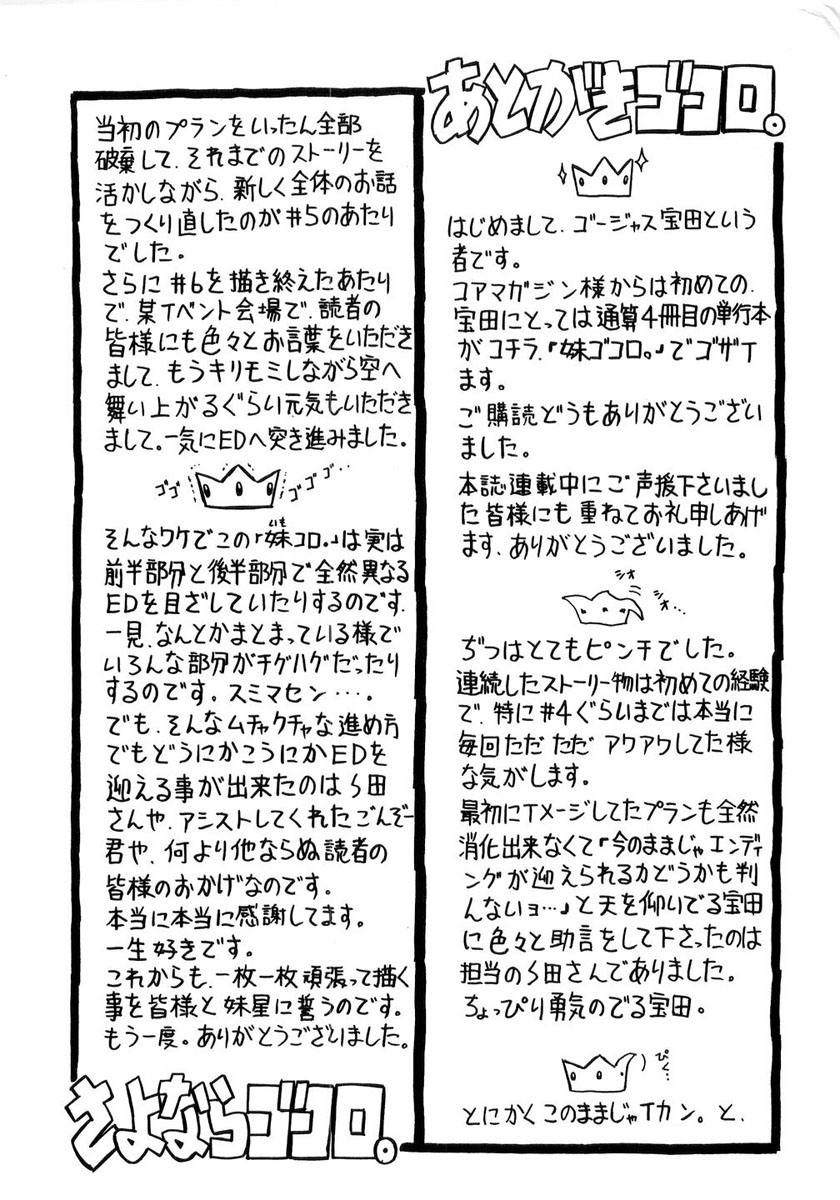 あとがきゴコロ。
はじめまして、ゴージャス宝田という
者です。
コアマガジン様からは初めての、
宝田にとっては通算4冊目の単行本
がコチラ、『妹ゴコロ。』でゴザイ
ます。
ご購読どうもありがとうござい
ました。
本誌連載中にご声援下さいまし
た皆様にも重ねてお礼申しあげ
ます、ありがとうございました。
シオ
シオ…
ぢつはとてもピンチでした。
連続したストーリー物は初めての経験
で、特に#4ぐらいまでは本当に
毎回ただただアワアワしてた様
な気がします。
最初にイメージしてたプランも全然
消化出来なくて『今のままじゃエンディ
ングが迎えられるかどうかも判
んないョ…』と天を仰いでる宝田
に色々と助言をして下さったのは
担当のS田さんでありました。
ちょっぴり勇気のでる宝田。
ぴく…
とにかくこのままじゃイカン。と、
当初のプランをいったん全部
破棄して、それまでのストーリーを
活かしながら、新しく全体のお話
をつくり直したのが#5のあたり
でした。
さらに#6を描き終えたあたり
で、某イベント会場で、読者の
皆様にも色々とお言葉をいただき
まして、もうキリモミしながら空へ
舞い上がるぐらい元気もいただき
まして。一気にEDへ突き進みました。
ゴゴゴ
ゴゴゴ…
そんなワケでこの『妹コロ。』は実は
いも
前半部分と後半部分で全然異なる
EDを目ざしていたりするのです。
一見、なんとかまとまっている様で
いろんな部分がチグハグだったり
するのです。スミマセン…。
でも、そんなムチャクチャな進め方
でもどうにかこうにかEDを
迎える事が出来たのはS田
さんや、アシストしてくれたごんぞー
君や、何より他ならぬ読者の
皆様のおかげなのです。
本当に本当に感謝してます。
一生好きです。
これからも、一枚一枚頑張って描く
事を皆様と妹星に誓うのです。
もう一度。ありがとうございました。
さよならゴコロ。